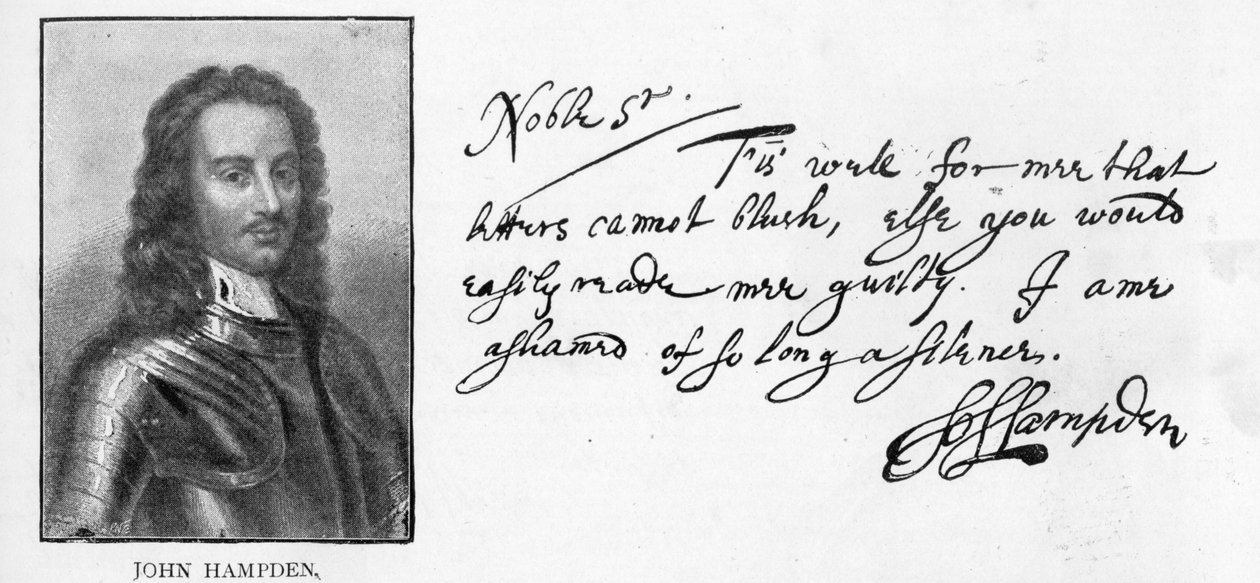 Noble Sr.
T'is well for mee that
letters cannot blush, else you would
easily reade mee guilty. I ame
ashamed of so long a silence.
Jo Hampden
JOHN HAMPDEN.